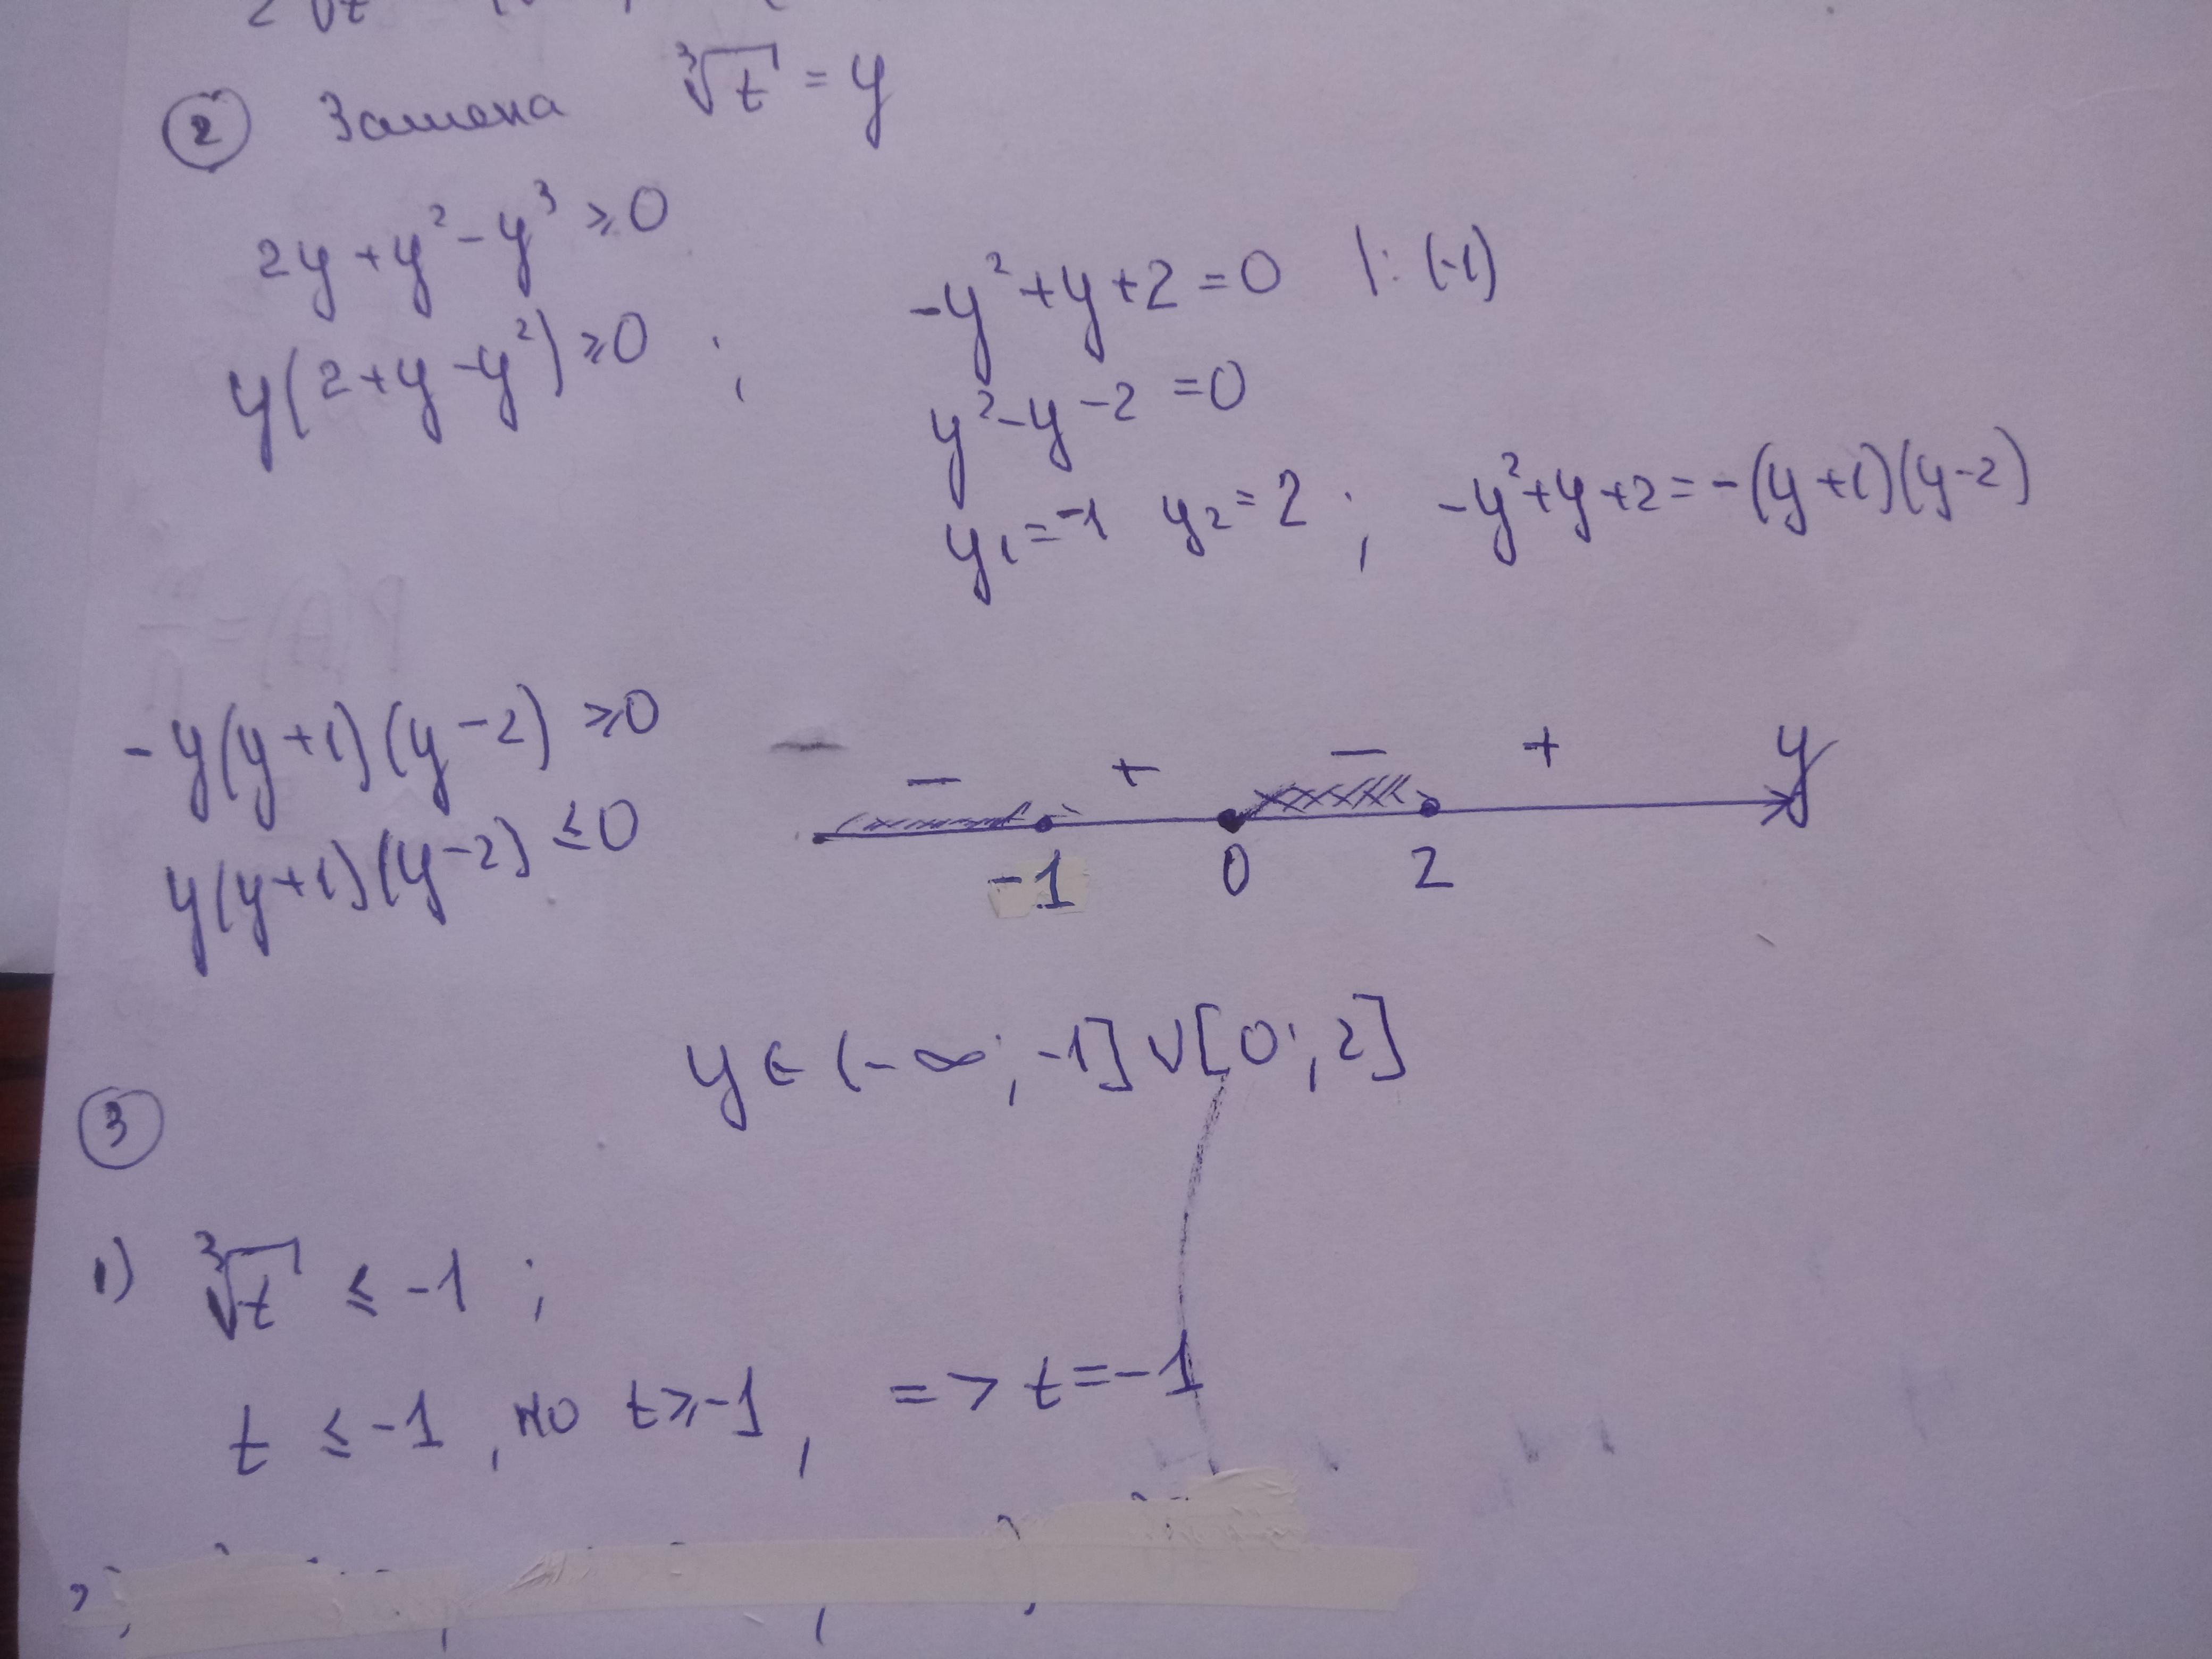 ② Замена ∛t = y
2y + y² - y³ ≥ 0
y(2 + y - y²) ≥ 0 ;
-y² + y + 2 = 0 |: (-1)
y² - y - 2 = 0
y₁ = -1 y₂ = 2 ; -y² + y + 2 = -(y + 1)(y - 2)
-y(y + 1)(y - 2) ≥ 0
y(y + 1)(y - 2) ≤ 0
- + - + y
-1 0 2
y ∈ (-∞; -1] ∪ [0; 2]
③
1) ∛t ≤ -1 ;
t ≤ -1, но t ≥ -1, => t = -1